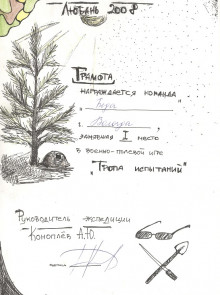 Любань 2008
Грамота
награждается команда
"
г. Вологда
занявшая I место
в военно-полевой игре
„Тропа испытаний"
Руководитель экспедиции
Коноплёв А.Ю.